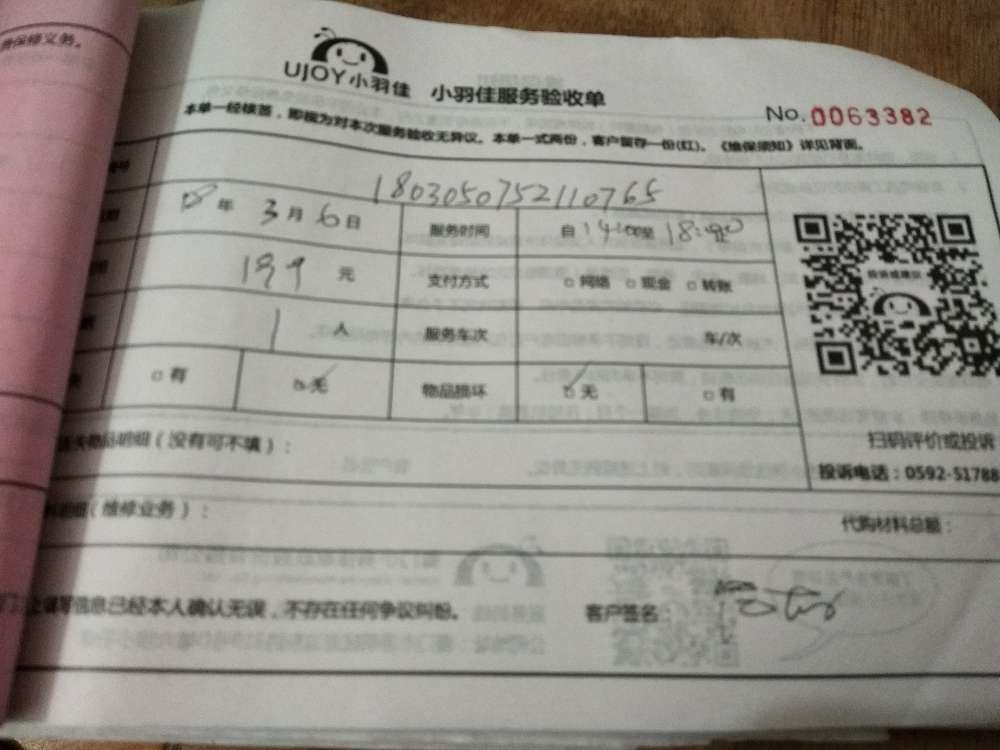 费保修义务。
UJOY小羽佳 小羽佳服务验收单
No. 0063382
本单一经核签，即视为对本次服务验收无异议。本单一式两份，客户留存一份(红)。《维保须知》详见背面。
1803050752110765
18年 3月6日 服务时间 自14:00至18:00止
199元 支付方式 □网络 □现金 □转账
1人 服务车次 车/次
□有 □无 物品损坏 □无 □有
投诉或建议
扫码评价或投诉
物品明细（没有可不填）：
投诉电话：0592-51788
（维修业务）：
代购材料总额：
信息已经本人确认无误，不存在任何争议纠纷。 客户签名：